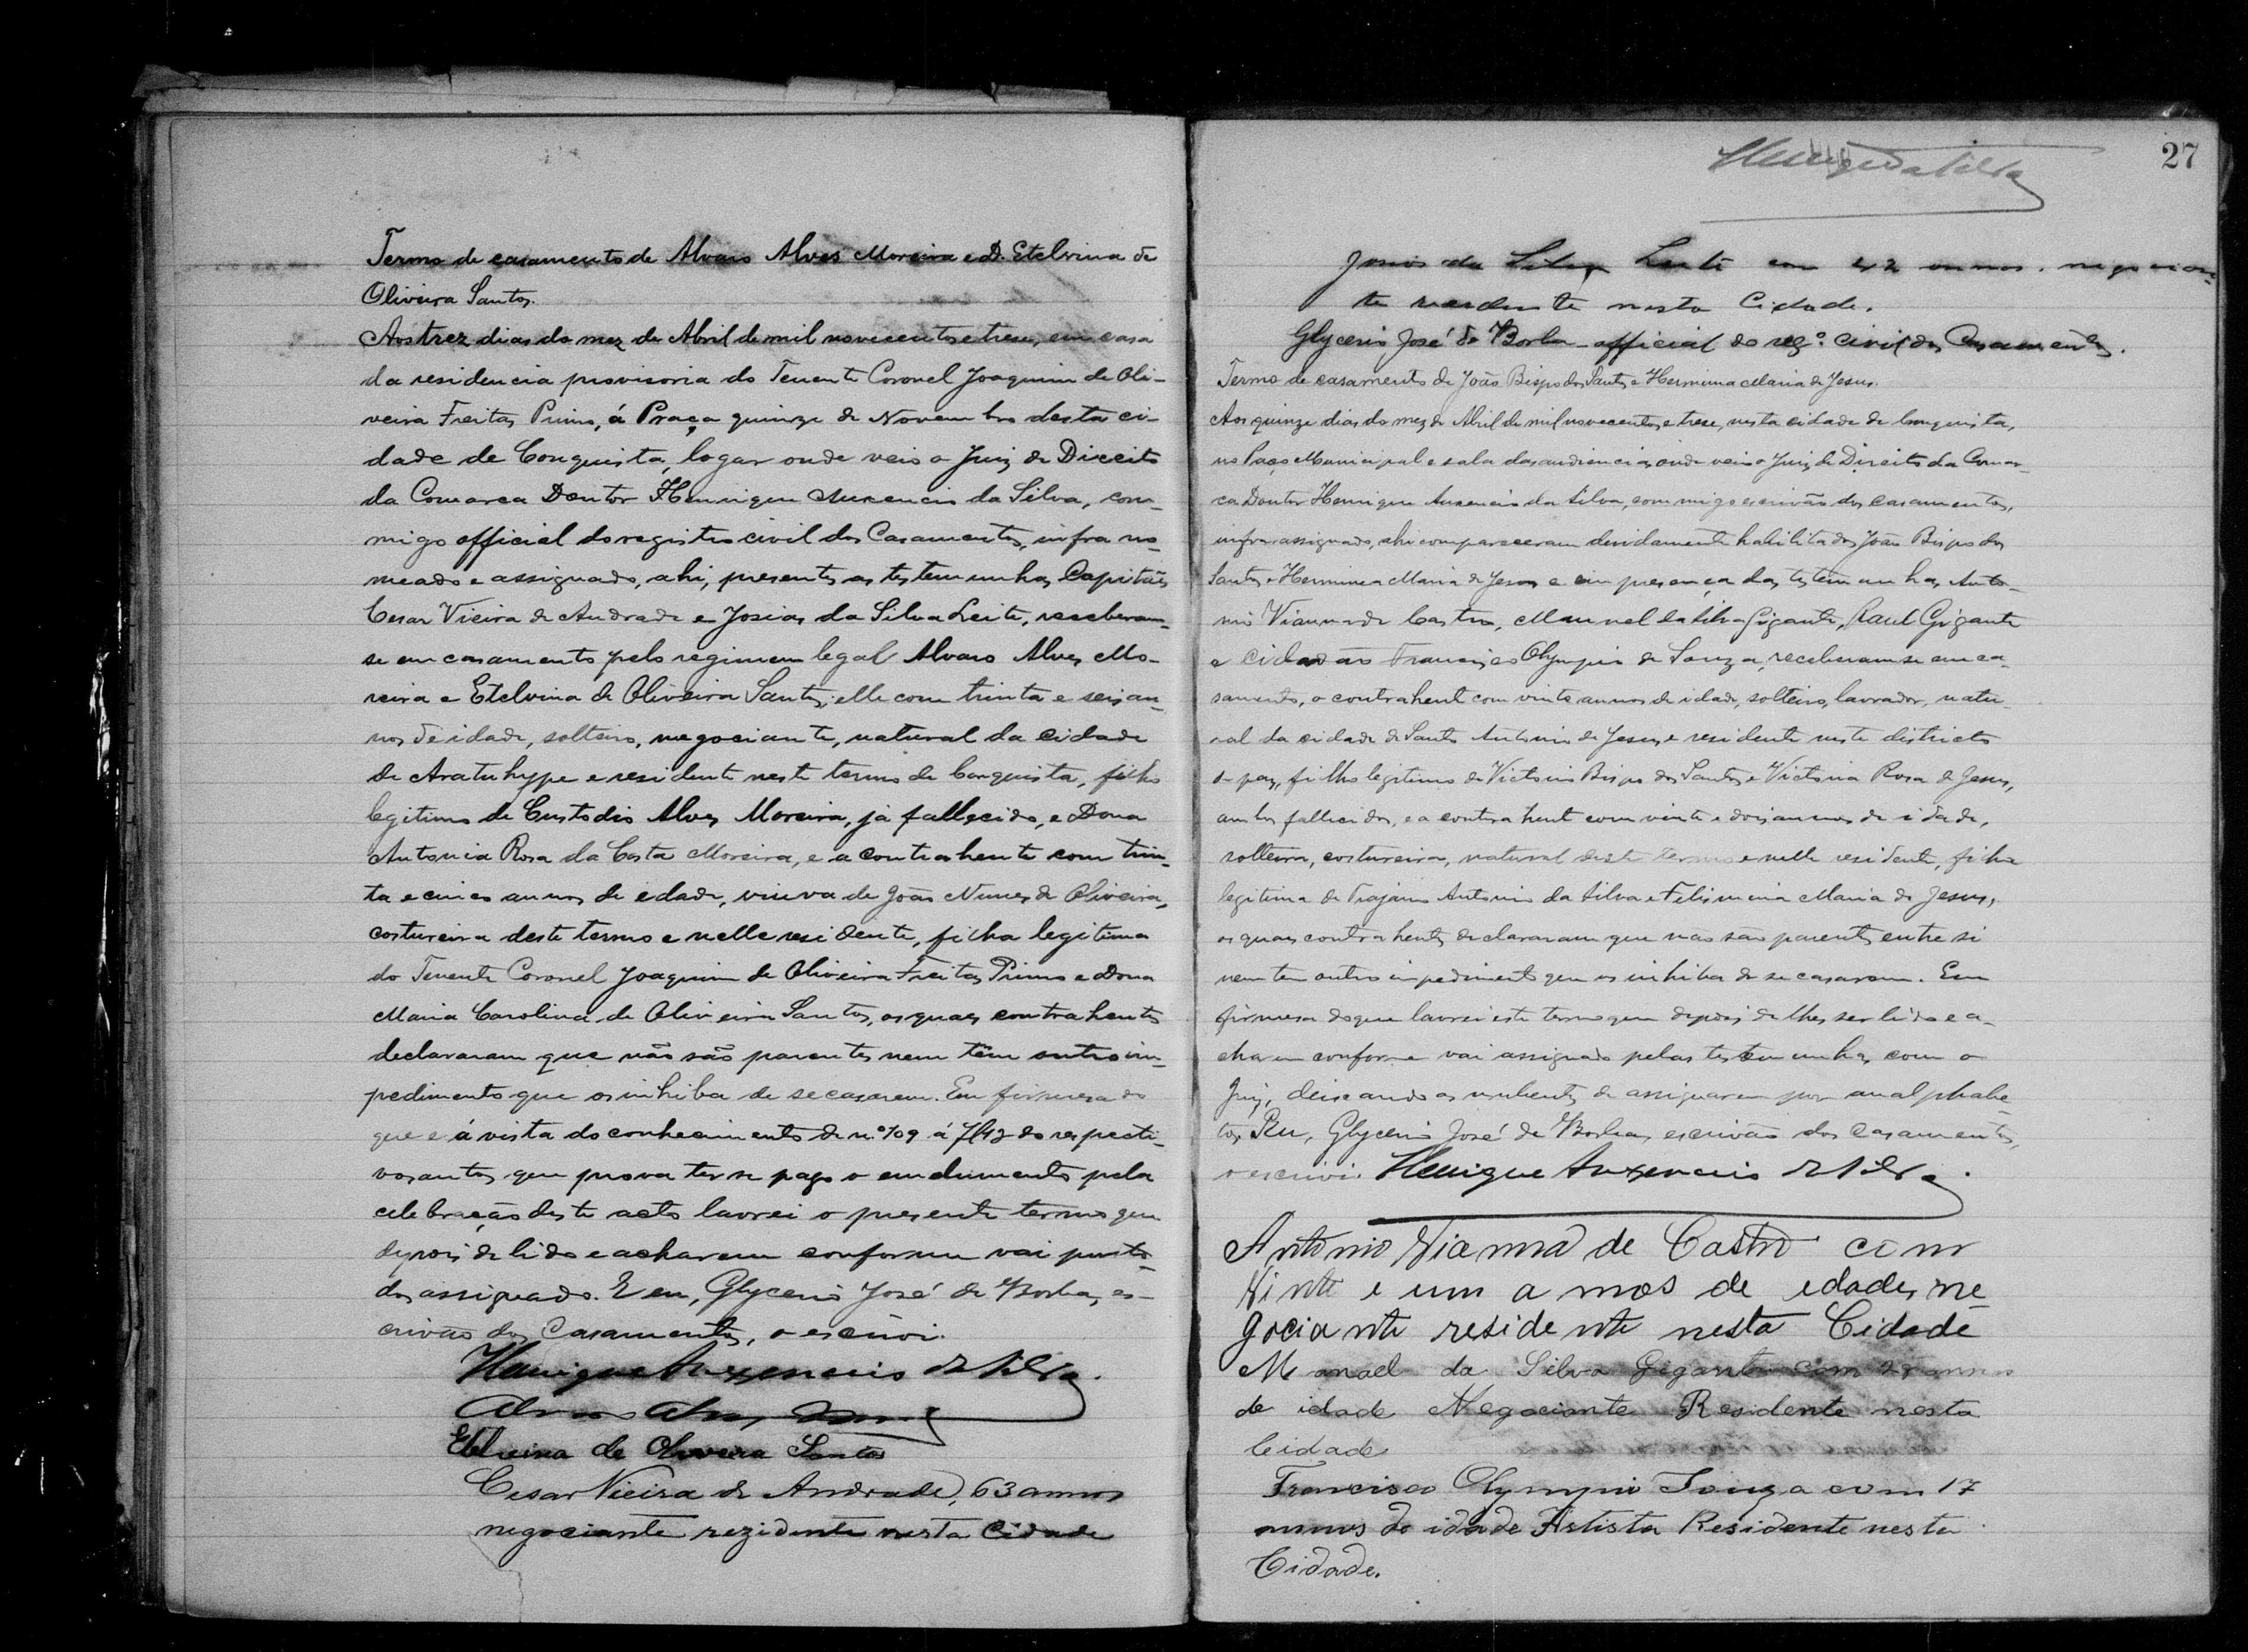 Termo de casamento de Alvaro Alves Moreira e D. Etelvina de
Oliveira Santos.
Aos trez dias do mez de Abril de mil novecentos e trese, em casa
da residencia provisoria do Tenente Coronel Joaquim de Oli-
veira Freitas Primo, á Praça quinze de Novembro desta ci-
dade de Conquista, logar onde veio o Juiz de Direito
da Comarca Doutor Henrique Auxencio da Silva, com-
migo official do registro civil dos Casamentos, infra no-
meado e assignado, ahi, presentes as testemunhas Capitães
Cesar Vieira de Andrade e Josias da Silva Leite, receberam-
se em casamento pelo regimem legal Alvaro Alves Mo-
reira e Etelvina de Oliveira Santos; elle com trinta e seis an-
nos de idade, solteiro, negociante, natural da cidade
de Aratuhype e residente neste termo de Conquista, filho
legitimo de Custodio Alves Moreira, já fallecido, e Dona
Antonia Rosa da Costa Moreira, e a contrahente com trin-
ta e cinco annos de edade, viuva de João Nunes de Oliveira,
costureira deste termo e nelle residente, filha legitima
do Tenente Coronel Joaquim de Oliveira Freitas Primo e Dona
Maria Carolina de Oliveira Santos, os quaes contrahentes
declararam que não são parentes nem têm outro im-
pedimento que os inhiba de se casarem. Em firmesa do
que e á vista do conhecimento de nº 109 á fl 42 dos respecti-
vos autos que prova ter se pago o emolumento pela
celebração deste acto lavrei o presente termo que
depois de lido e acharem conforme vai por to-
dos assignado. E eu, Glycerio José de Borba, es-
crivão dos Casamentos, o escrivi.
Henrique Auxencio da Silva.
Alvaro Alves Moreira
Etelvina de Oliveira Santos
Cesar Vieira de Andrade, 63 annos
negociante rezidente nesta Cidade
27
Henriq da Silva
Josias da Silva Leite com 42 annos. negocian-
te resedente nesta Cidade.
Glycerio José de Borba - official do regº. civil dos Casamentos.
Termo de casamento de João Bispo dos Santos e Herminia Maria de Jesus.
Aos quinze dias do mez de Abril de mil novecentos e trese, nesta cidade de Conquista,
no Paço Municipal e sala das audiencias onde veio o Juiz de Direito da Comar-
ca Doutor Henrique Auxencio da Silva, commigo escrivão dos casamentos,
infra assignado, ahi compareceram devidamente habilitados João Bispo dos
Santos e Herminia Maria de Jesus e em presença das testemunhas Anto-
nio Vianna de Castro, Manuel da Silva Gigante, Raul Gigante
e cidadão Francisco Olympio de Souza, receberam se em ca-
samento, o contrahent com vinte annos de idade, solteiro, lavrador, natu-
ral da cidade de Santo Antonio de Jesus e residente neste districto
de paz, filho legitimo de Victorio Bispo dos Santos e Victoria Rosa de Jesus,
ambos fallecidos, e a contrahent com vinte e dois annos de idade,
solteira, costureira, natural deste termo e nelle residente, filha
legitima de Trajano Antonio da Silva e Felismina Maria de Jesus,
os quaes contrahents declararam que nao são parents entre si
nem tem outro impediment que os inhiba de se casarem. Em
firmesa do que lavrei este termo que depois de lhes ser lido e a-
charem conforme vai assignado pelas testemunhas com o
Juiz, deixando os nubents de assignarem por analphabe-
tos. Eu, Glycerio José de Borba, escrivão dos casamentos,
o escrivi. Henrique Auxencio da Silva.
Antonio Vianna de Castro com
Vinte e um annos de edades ne-
gociante residente nesta Cidade
Manoel da Silva Gigante com annos
de idade Negociante Residente nesta
Cidade
Francisco Olympio Souza com 17
annos de idade Artista Residente nesta
Cidade.